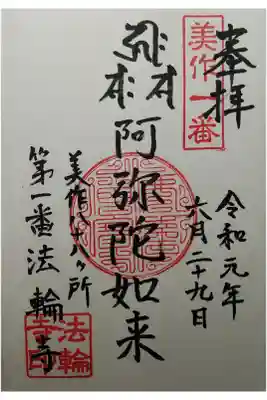 奉拝
美作一番
令和元年
六月二十九日
阿弥陀如来
美作八十八ヶ所
第一番法輪寺
法輪寺印